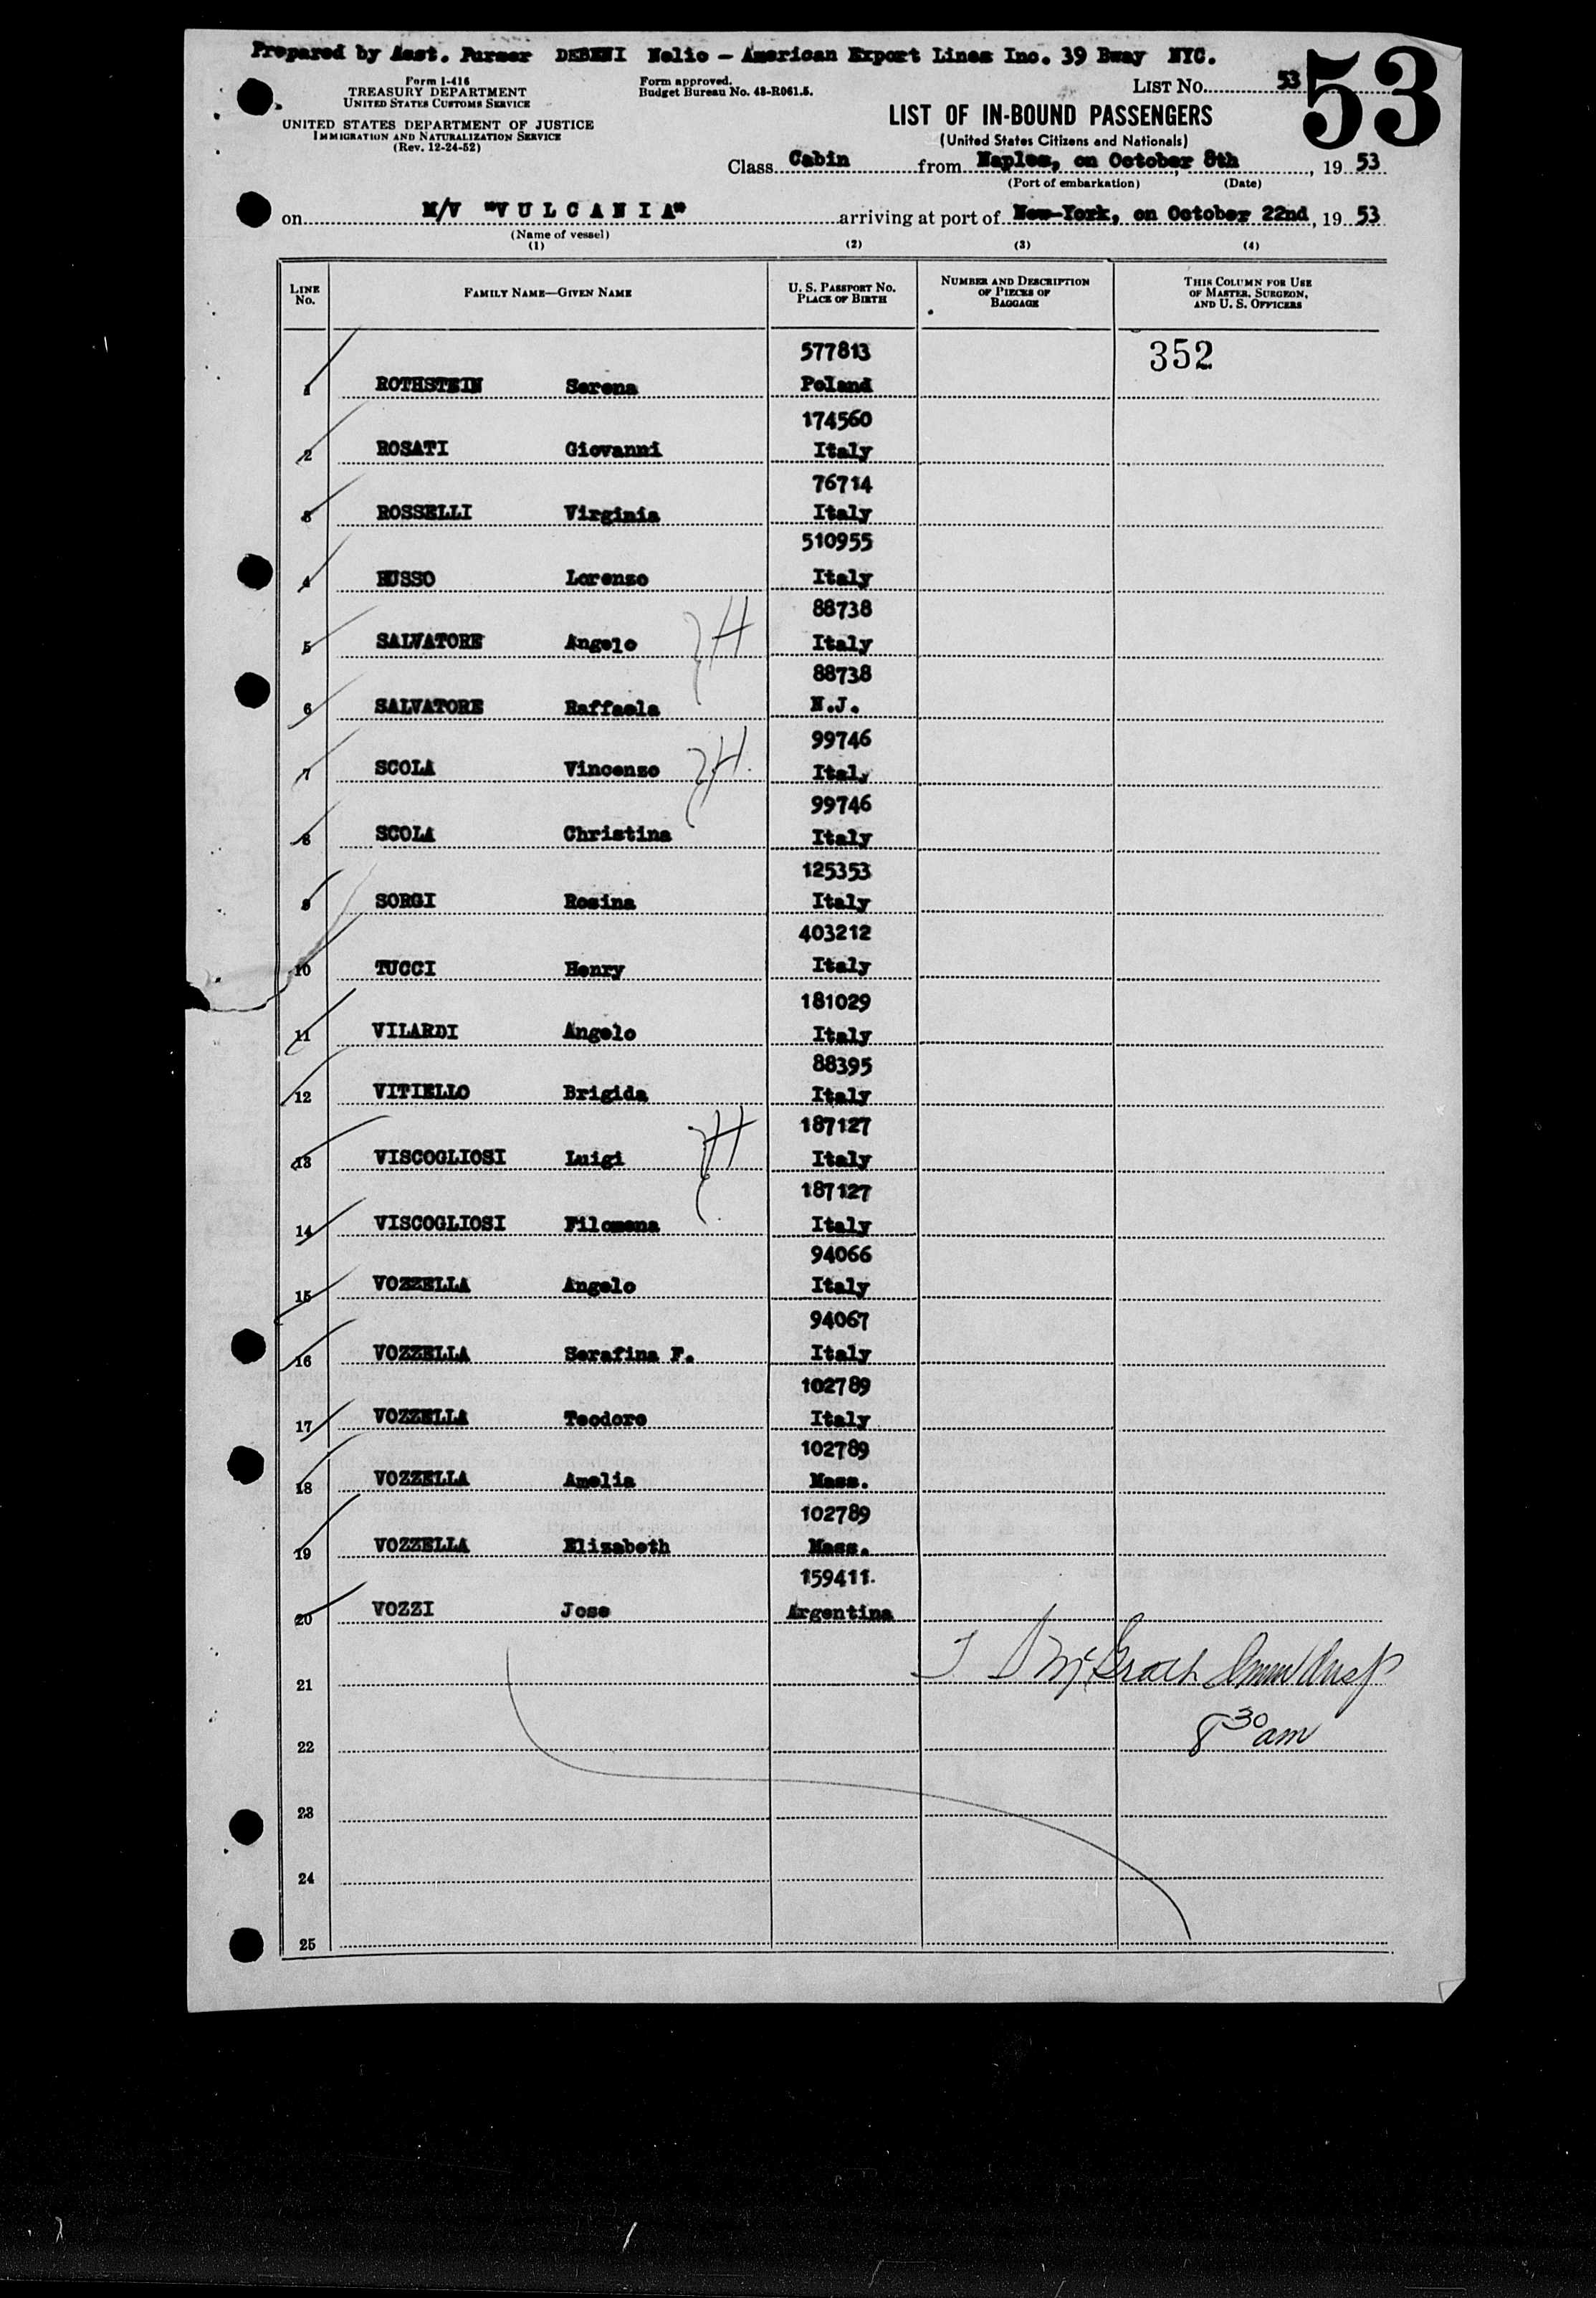 Prepared by Asst. Purser DEBENI Nelio - American Export Lines Inc. 39 Bway NYC.
53
Form I-416
TREASURY DEPARTMENT
UNITED STATES CUSTOMS SERVICE
Form approved.
Budget Bureau No. 43-R061.5.
LIST No. 53
UNITED STATES DEPARTMENT OF JUSTICE
IMMIGRATION AND NATURALIZATION SERVICE
(Rev. 12-24-52)
LIST OF IN-BOUND PASSENGERS
(United States Citizens and Nationals)
Class Cabin from Naples, on October 8th, 19 53
(Port of embarkation) (Date)
on M/V "VULCANIA" arriving at port of New-York, on October 22nd, 19 53
(Name of vessel)
(1) (2) (3) (4)
LINE No. FAMILY NAME—GIVEN NAME U. S. PASSPORT No. PLACE OF BIRTH NUMBER AND DESCRIPTION OF PIECES OF BAGGAGE THIS COLUMN FOR USE OF MASTER, SURGEON, AND U. S. OFFICERS
577813 352
1 ROTHSTEIN Serena Poland
174560
2 ROSATI Giovanni Italy
76714
3 ROSSELLI Virginia Italy
510955
4 RUSSO Lorenzo Italy
88738
5 SALVATORE Angelo Italy
88738
6 SALVATORE Raffaela N.J.
99746
7 SCOLA Vincenzo Italy
99746
8 SCOLA Christina Italy
125353
9 SORGI Rosina Italy
403212
10 TUCCI Henry Italy
181029
11 VILARDI Angelo Italy
88395
12 VITIELLO Brigida Italy
187127
13 VISCOGLIOSI Luigi Italy
187127
14 VISCOGLIOSI Filomena Italy
94066
15 VOZZELLA Angelo Italy
94067
16 VOZZELLA Serafina F. Italy
102789
17 VOZZELLA Teodoro Italy
102789
18 VOZZELLA Amelia Mass.
102789
19 VOZZELLA Elizabeth Mass.
159411
20 VOZZI Jose Argentina
21 McGrath Imm Insp
22 8 30 am
23
24
25